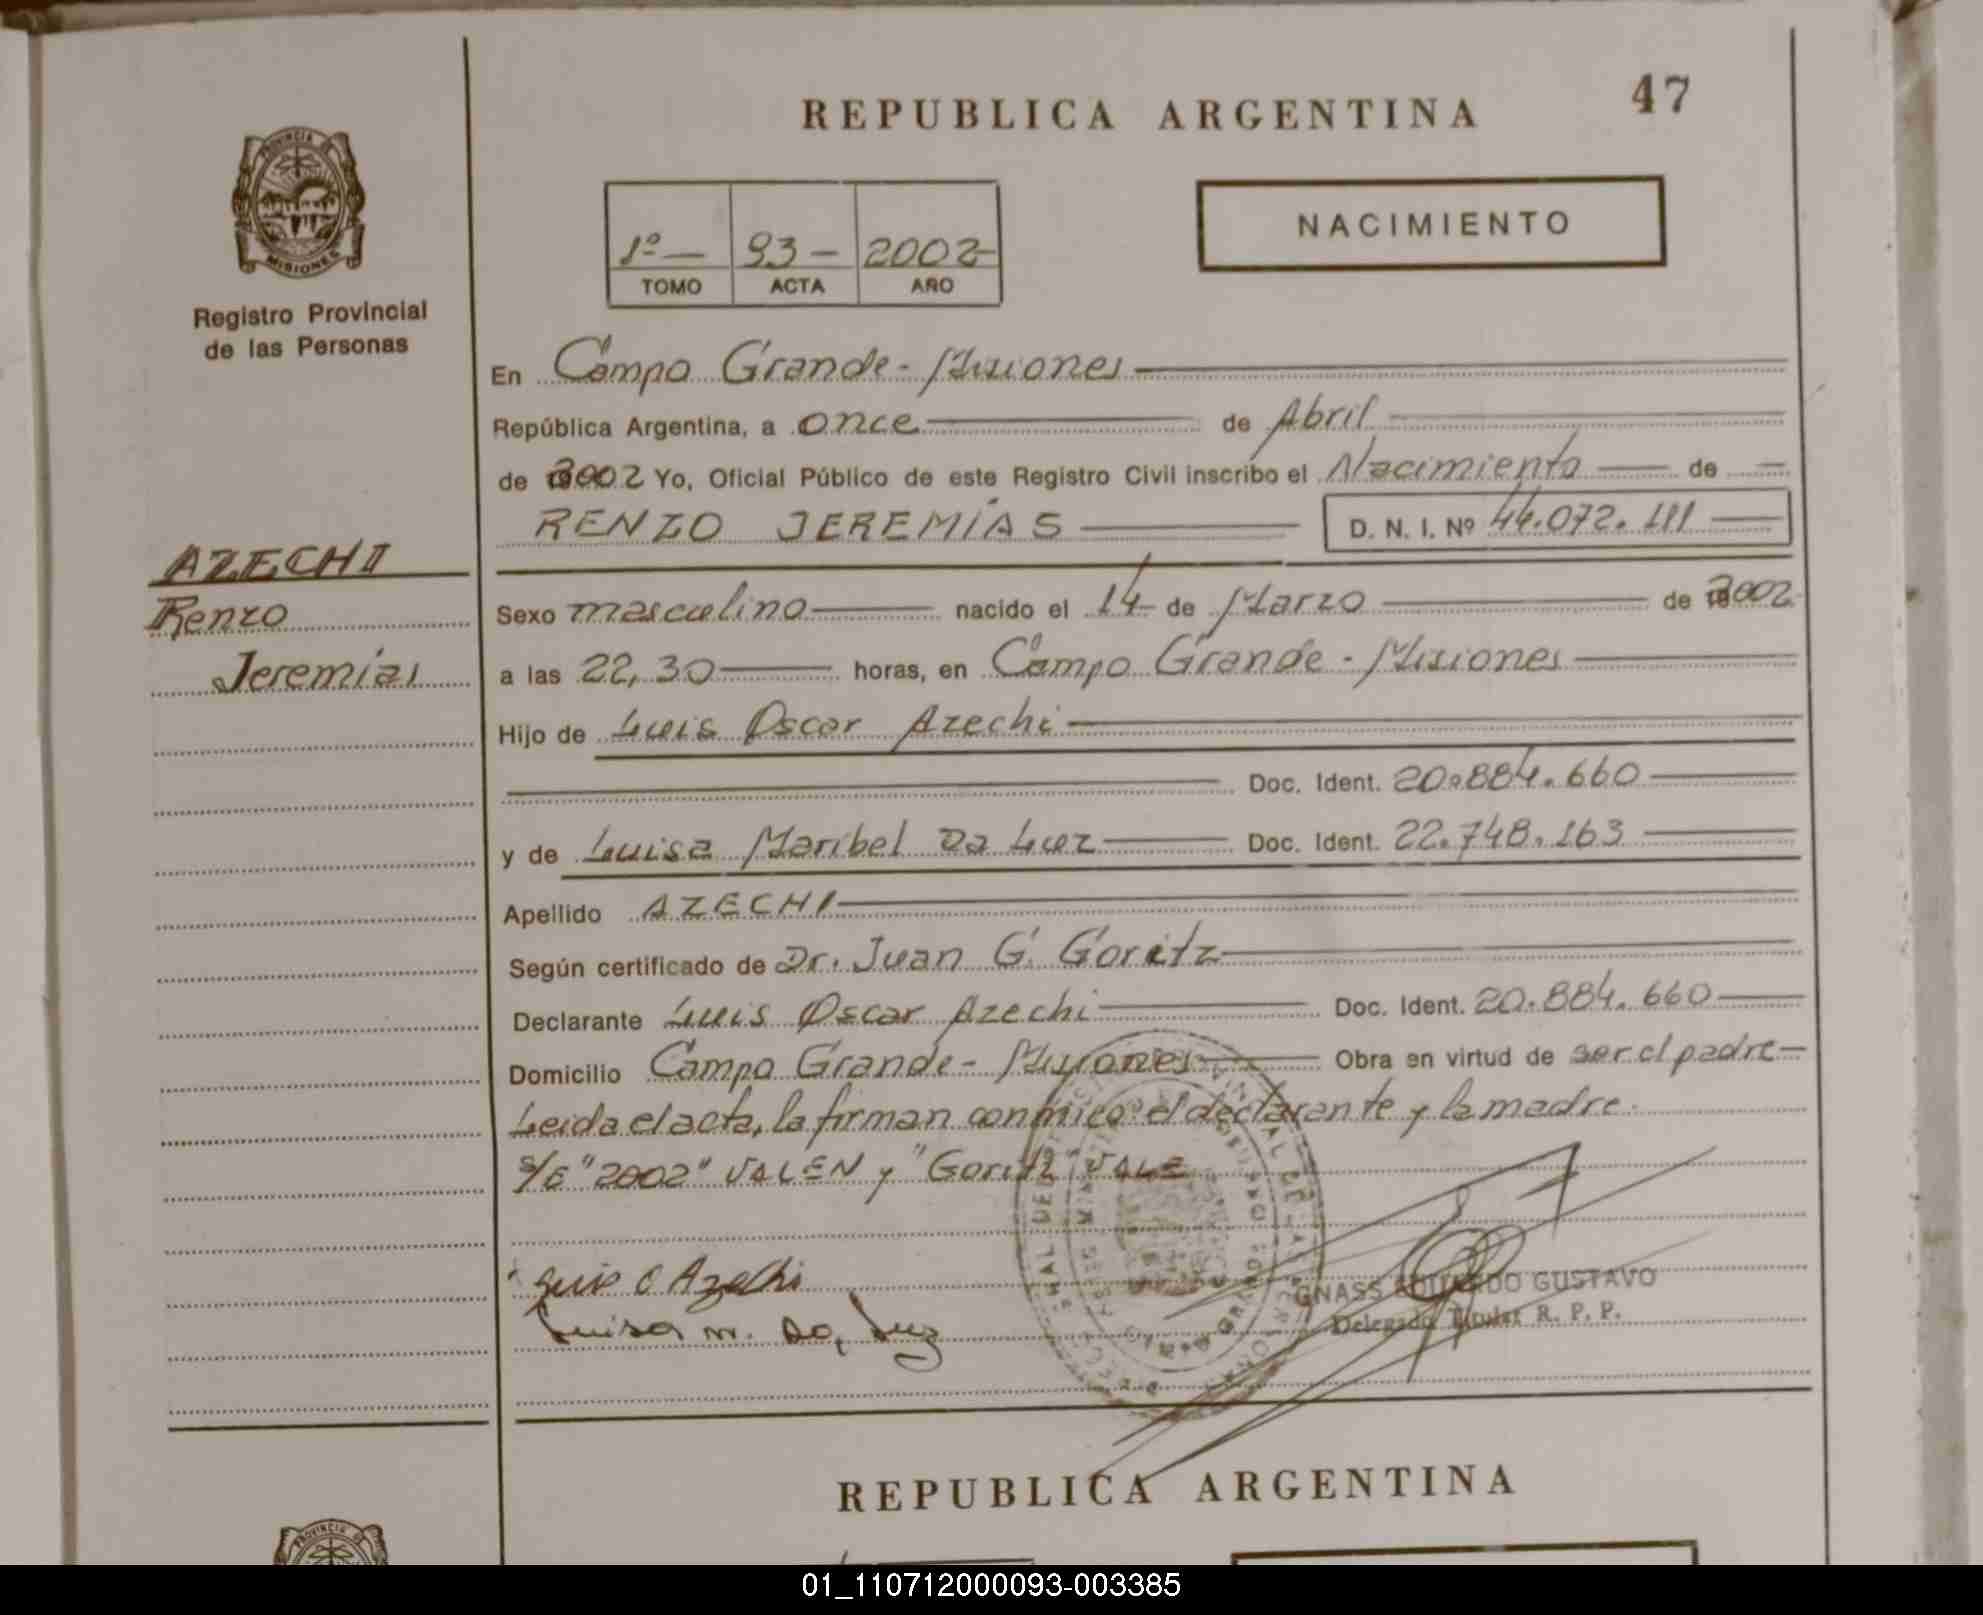 47
REPUBLICA ARGENTINA
PROVINCIA DE
MISIONES
Registro Provincial
de las Personas
NACIMIENTO
1º — 93 — 2002
TOMO ACTA AÑO
En Campo Grande - Misiones
República Argentina, a once de Abril
de 2002 Yo, Oficial Público de este Registro Civil inscribo el Nacimiento de
RENZO JEREMÍAS D. N. I. Nº 44.072.111
AZECHI
Renzo
Jeremías
Sexo masculino nacido el 14 de Marzo de 2002
a las 22,30 horas, en Campo Grande - Misiones
Hijo de Luis Oscar Azechi
Doc. Ident. 20.884.660
y de Luisa Maribel Da Luz Doc. Ident. 22.748.163
Apellido AZECHI
Según certificado de Dr. Juan G. Goritz
Declarante Luis Oscar Azechi Doc. Ident. 20.884.660
Domicilio Campo Grande - Misiones Obra en virtud de ser el padre
Leida el acta, la firman conmigo: el declarante y la madre.
S/E "2002" VALEN y "Goritz" VALE
Luis O Azechi
Luisa M. Da Luz
GNASS EDUARDO GUSTAVO
Delegado Titular R. P. P.
REPUBLICA ARGENTINA
PROVINCIA DE
01_110712000093-003385